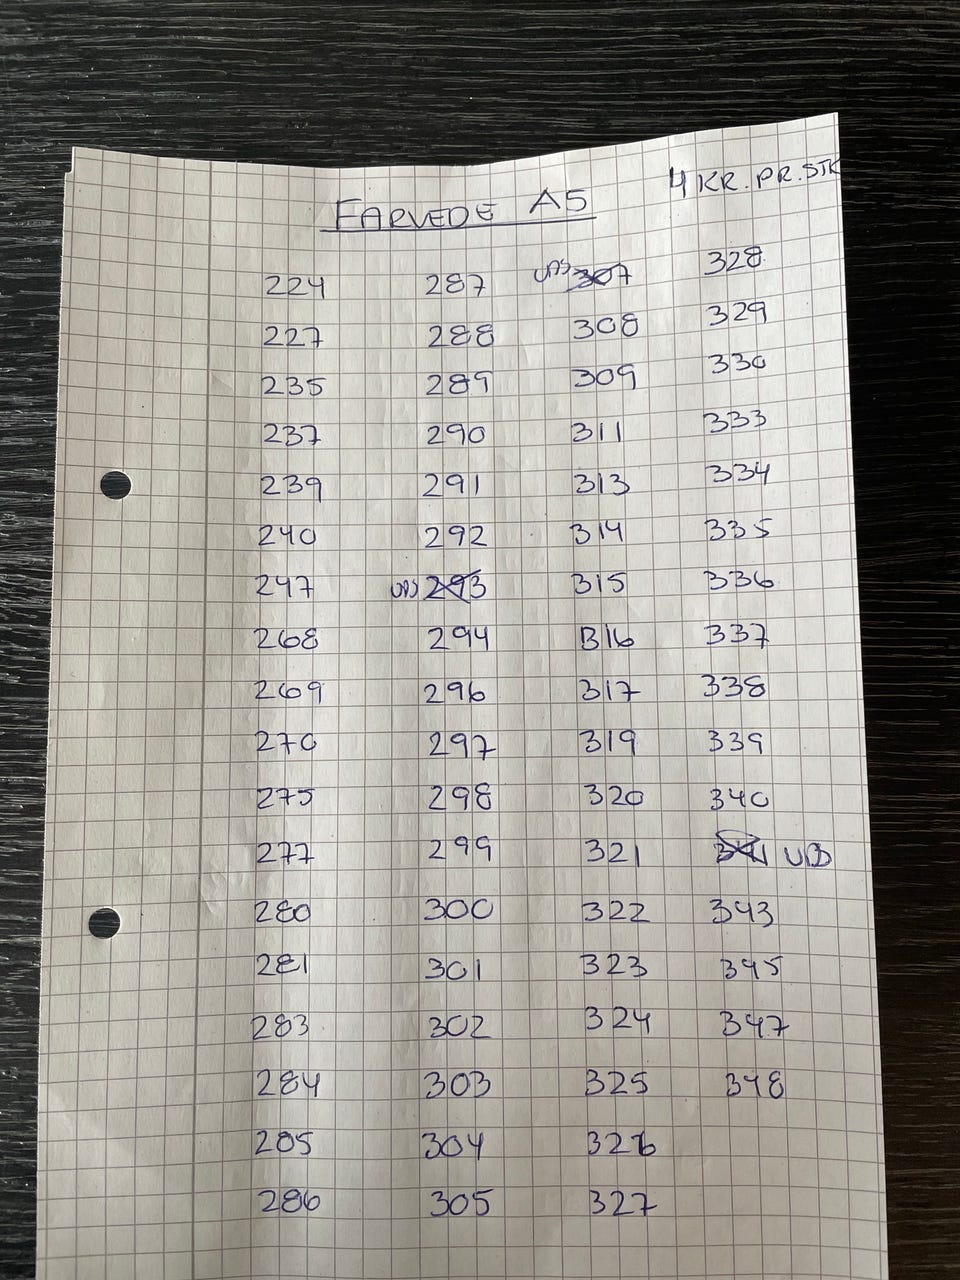 4 KR. PR. STK
FARVEDE A5
224 287 307 328
227 288 308 329
235 289 309 330
237 290 311 333
239 291 313 334
240 292 314 335
247 293 315 336
268 294 316 337
269 296 317 338
270 297 319 339
275 298 320 340
277 299 321 341 UD
280 300 322 343
281 301 323 345
283 302 324 347
284 303 325 348
285 304 326
286 305 327